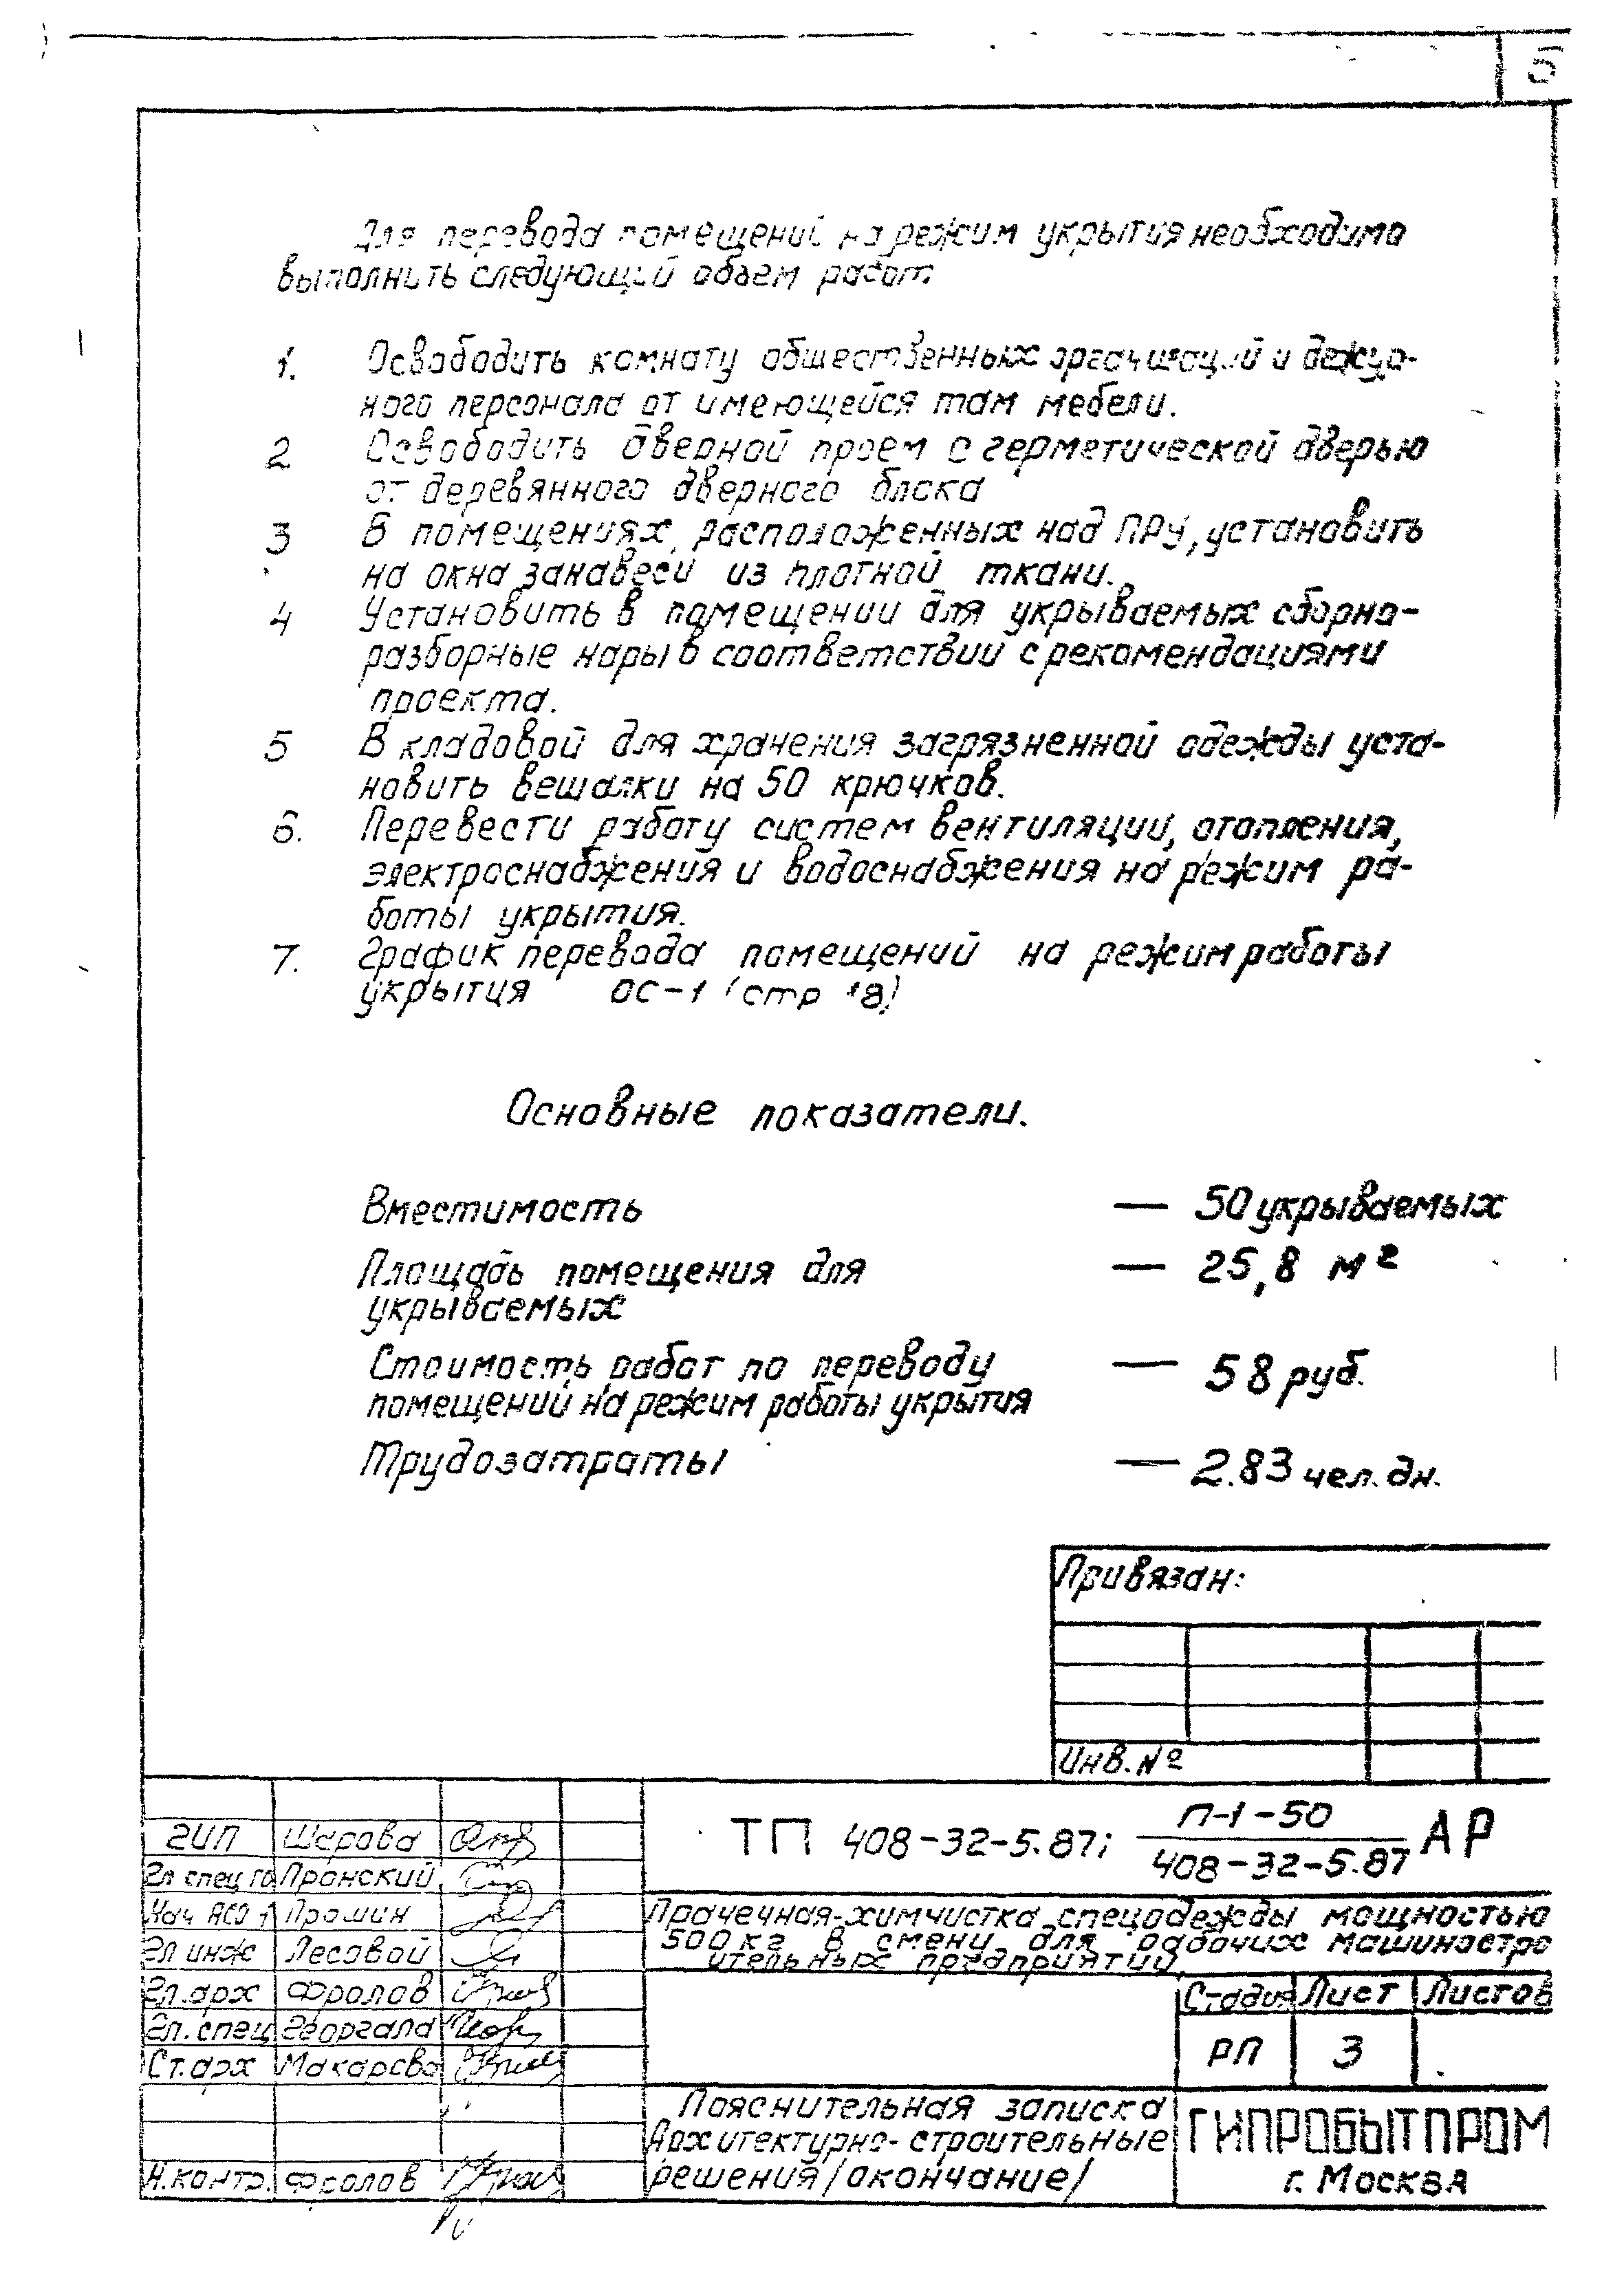 5
Для перевода помещений на режим укрытия необходимо
выполнить следующий объем работ
1. Освободить комнату общественных организаций и дежур-
ного персонала от имеющейся там мебели.
2 Освободить дверной проем с герметической дверью
от деревянного дверного блока
3 В помещениях, расположенных над ПРУ, установить
на окна занавеси из плотной ткани.
4 Установить в помещении для укрываемых сборно-
разборные нары в соответствии с рекомендациями
проекта.
5 В кладовой для хранения загрязненной одежды уста-
новить вешалки на 50 крючков.
6. Перевести работу систем вентиляции, отопления,
электроснабжения и водоснабжения на режим ра-
боты укрытия.
7. График перевода помещений на режим работы
укрытия ОС-1 (стр 18)
Основные показатели.
Вместимость — 50 укрываемых
Площадь помещения для — 25,8 м²
укрываемых
Стоимость работ по переводу — 58 руб.
помещений на режим работы укрытия
Трудозатраты — 2.83 чел. дн.
Привязан:
Инв. №
ТП 408-32-5.87; П-1-50 / 408-32-5.87 АР
ГИП Шарова
Гл спец ГО Пронский
Нач АСО 1 Прошин
Гл инж Лесовой
Гл. арх Фролов
Гл. спец Георгала
Ст. арх Макарова
Н. контр. Фролов
Прачечная-химчистка спецодежды мощностью
500 кг в смену для рабочих машиностро
ительных предприятий
Стадия Лист Листов
РП 3
Пояснительная записка
Архитектурно-строительные
решения /окончание/
ГИПРОБЫТПРОМ
г. Москва